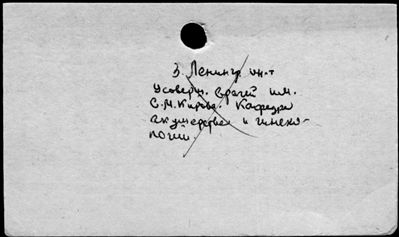 3. Ленингр. ин-т
усоверш. врачей им.
С.М. Кирова. Кафедра
акушерства и гинеко-
логии.